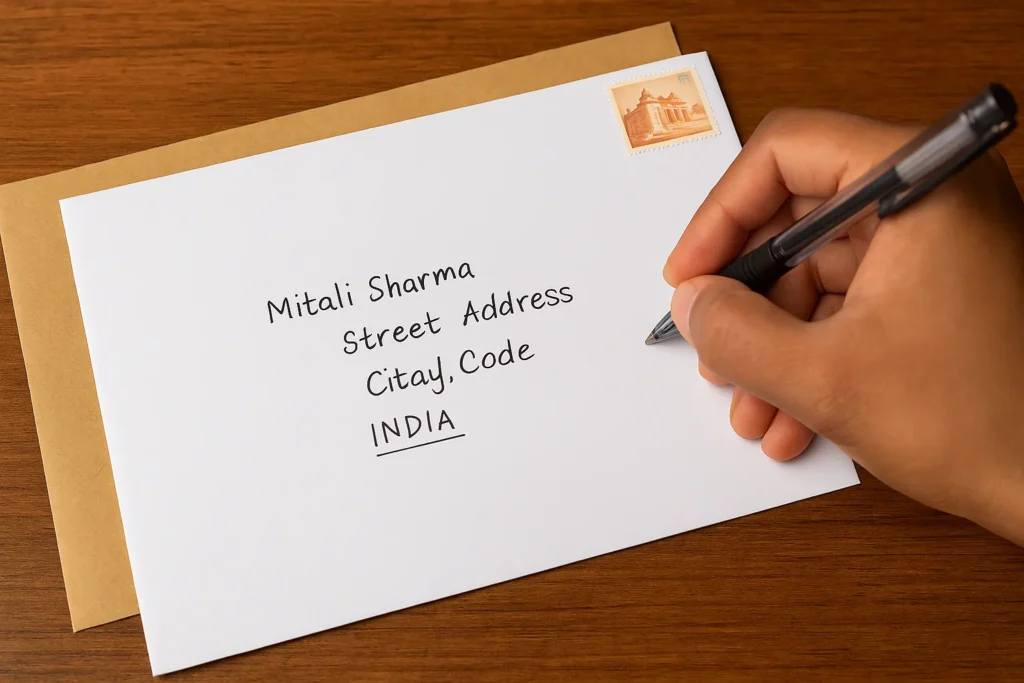 Mitali Sharma
Street Address
Citay, Code
INDIA